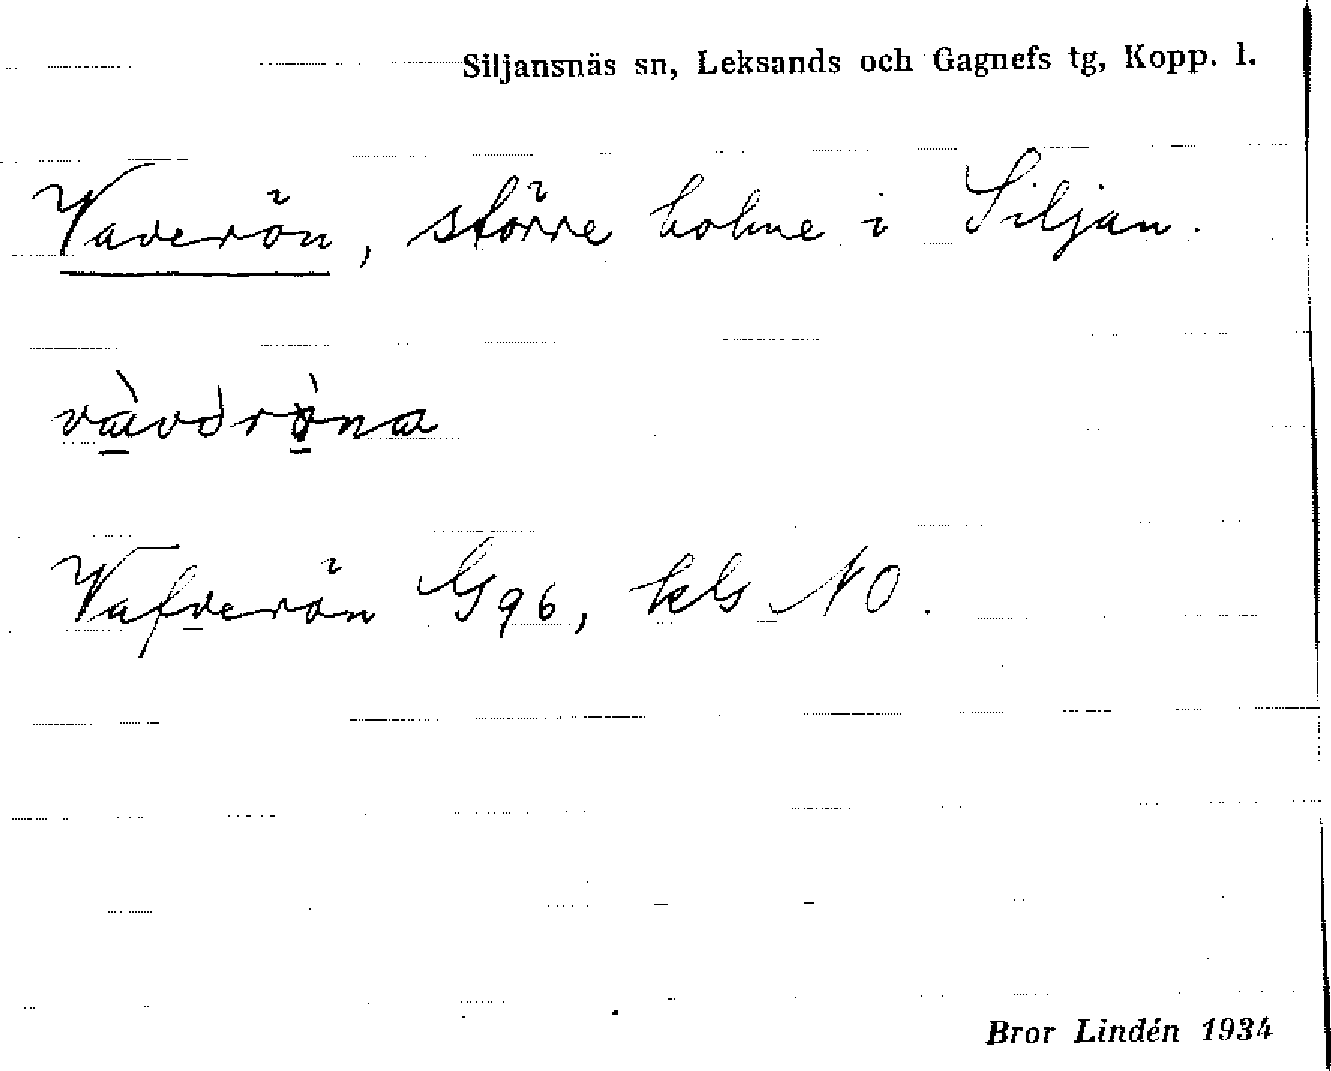 Siljansnäs sn, Leksands och Gagnefs tg, Kopp. l.
Vaverön, större holme i Siljan.
vàvərö̀na
Vafverön G96, kls NO.
Bror Lindén 1934